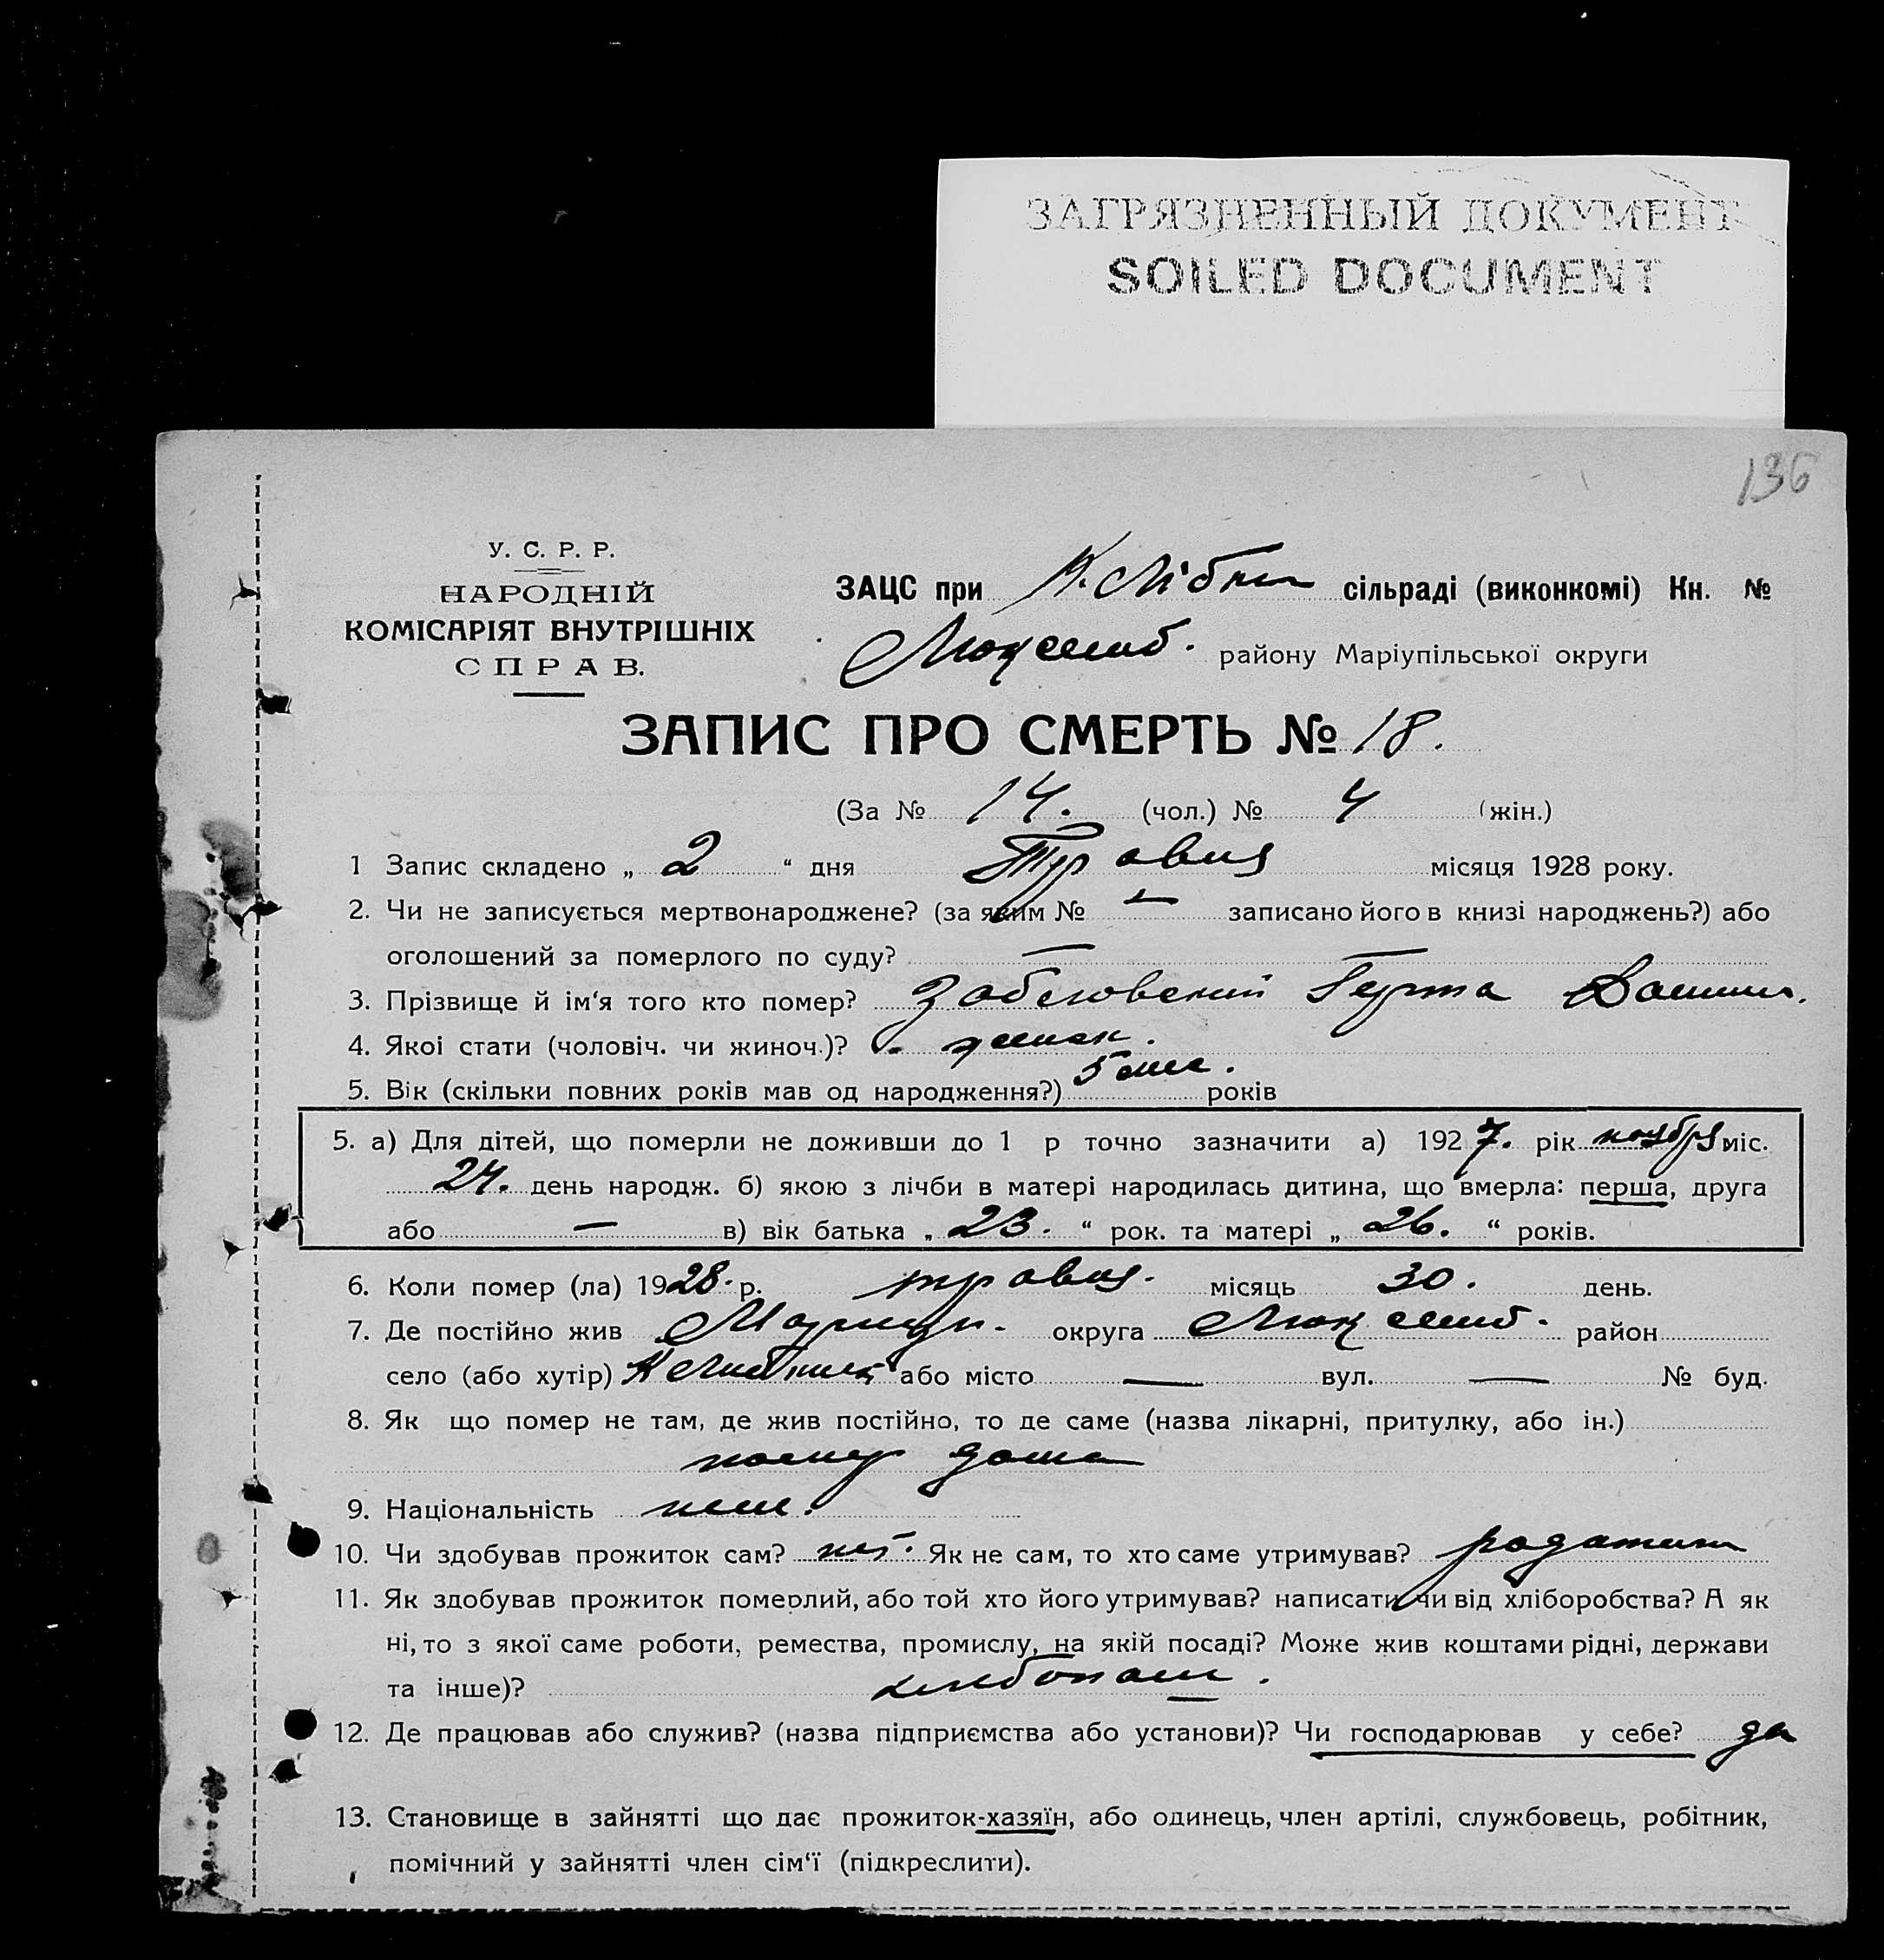 ЗАГРЯЗНЕННЫЙ ДОКУМЕНТ
SOILED DOCUMENT
136
У. С. Р. Р.
НАРОДНІЙ
КОМІСАРІЯТ ВНУТРІШНІХ
СПРАВ.
ЗАЦС при сільраді (виконкомі) Кн. №
Люксемб. району Маріупільської округи
ЗАПИС ПРО СМЕРТЬ № 18.
(За № 14. (чол.) № 4 (жін.)
1 Запис складено „ 2 “ дня Травня місяця 1928 року.
2. Чи не записується мертвонароджене? (за яким № — записано його в книзі народжень?) або
оголошений за померлого по суду? — —
3. Прізвище й ім‘я того кто помер?
4. Якоі стати (чоловіч. чи жиноч.)? женск.
5. Вік (скільки повних років мав од народження?) 5 мес. років
5. а) Для дітей, що померли не доживши до 1 р точно зазначити а) 1927. рік ноября міс.
24. день народж. б) якою з лічби в матері народилась дитина, що вмерла: перша, друга
або — в) вік батька „ 23. “ рок. та матері „ 26. “ років.
6. Коли помер (ла) 1928. р. травня. місяць 30. день.
7. Де постійно жив Мариуп. округа Люксемб. район
село (або хутір) або місто — вул. — № буд.
8. Як що помер не там, де жив постійно, то де саме (назва лікарні, притулку, або ін.)
помер дома
9. Національність нем.
10. Чи здобував прожиток сам? нет. Як не сам, то хто саме утримував? родители
11. Як здобував прожиток померлий, або той хто його утримував? написати чи від хліборобства? А як
ні, то з якої саме роботи, ремества, промислу, на якій посаді? Може жив коштами рідні, держави
та інше)? хлебопаш.
12. Де працював або служив? (назва підприємства або установи)? Чи господарював у себе? да
13. Становище в зайнятті що дає прожиток-хазяїн, або одинець, член артілі, службовець, робітник,
помічний у зайнятті член сім‘ї (підкреслити).